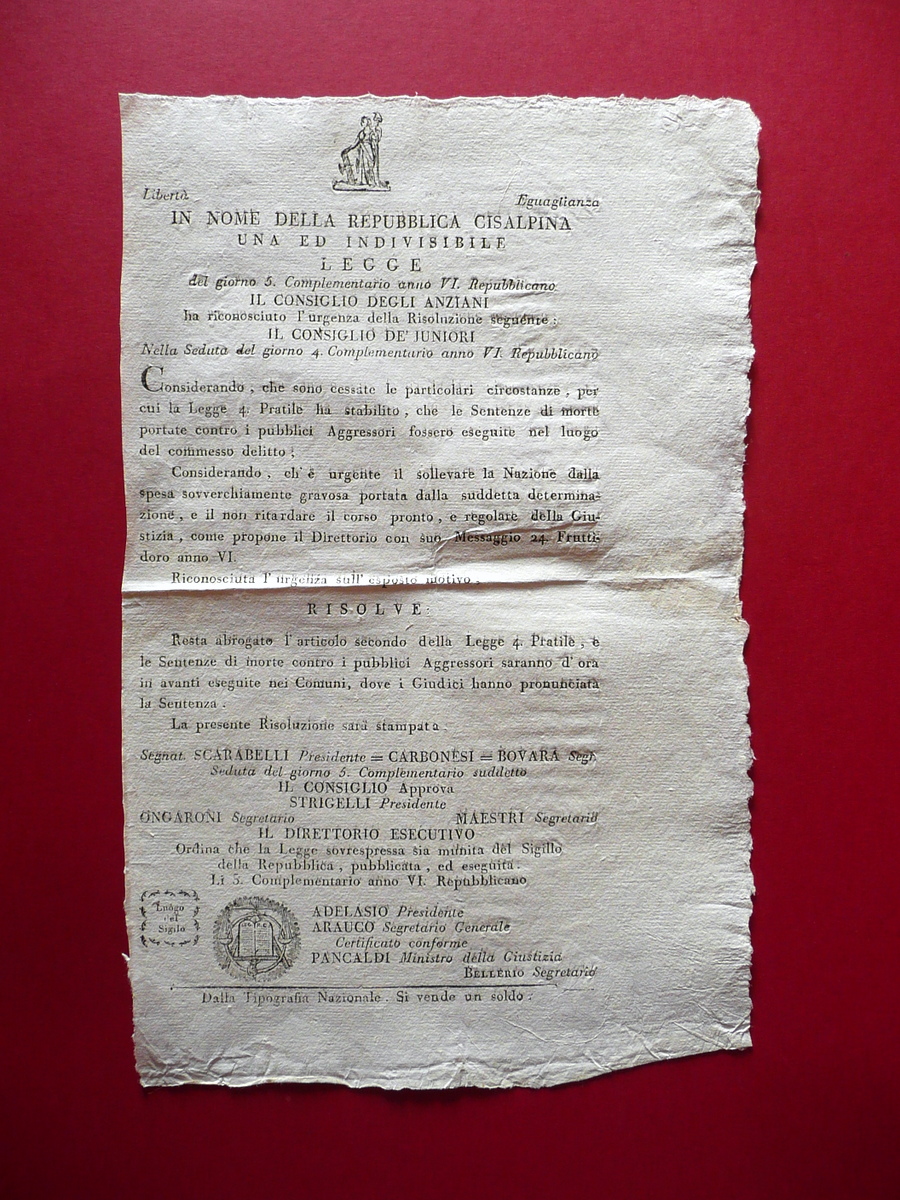 Libertà Eguaglianza
IN NOME DELLA REPUBBLICA CISALPINA
UNA ED INDIVISIBILE
LEGGE
del giorno 5. Complementario anno VI. Repubblicano
IL CONSIGLIO DEGLI ANZIANI
ha riconosciuto l'urgenza della Risoluzione seguente:
IL CONSIGLIO DE' JUNIORI
Nella Seduta del giorno 4. Complementario anno VI. Repubblicano
Considerando, che sono cessate le particolari circostanze, per
cui la Legge 4. Pratile ha stabilito, che le Sentenze di morte
portate contro i pubblici Aggressori fossero eseguite nel luogo
del commesso delitto;
Considerando, ch' è urgente il sollevare la Nazione dalla
spesa sovverchiamente gravosa portata dalla suddetta determina-
zione, e il non ritardare il corso pronto, e regolare della Giu-
stizia, come propone il Direttorio con suo Messaggio 24. Frutti-
doro anno VI.
Riconosciuta l'urgenza sull' esposto motivo,
RISOLVE:
Resta abrogato l'articolo secondo della Legge 4. Pratile, e
le Sentenze di morte contro i pubblici Aggressori saranno d'ora
in avanti eseguite nei Comuni, dove i Giudici hanno pronunciata
la Sentenza.
La presente Risoluzione sarà stampata.
Segnat. SCARABELLI Presidente = CARBONESI = BOVARA Segr.
Seduta del giorno 5. Complementario suddetto
IL CONSIGLIO Approva
STRIGELLI Presidente
ONGARONI Segretario MAESTRI Segretario
IL DIRETTORIO ESECUTIVO
Ordina che la Legge sovrespressa sia munita del Sigillo
della Repubblica, pubblicata, ed eseguita.
Li 5. Complementario anno VI. Repubblicano
Luogo
del
Sigilo
ADELASIO Presidente
ARAUCO Segretario Generale
Certificato conforme
PANCALDI Ministro della Giustizia
BELLERIO Segretario
Dalla Tipografia Nazionale. Si vende un soldo.